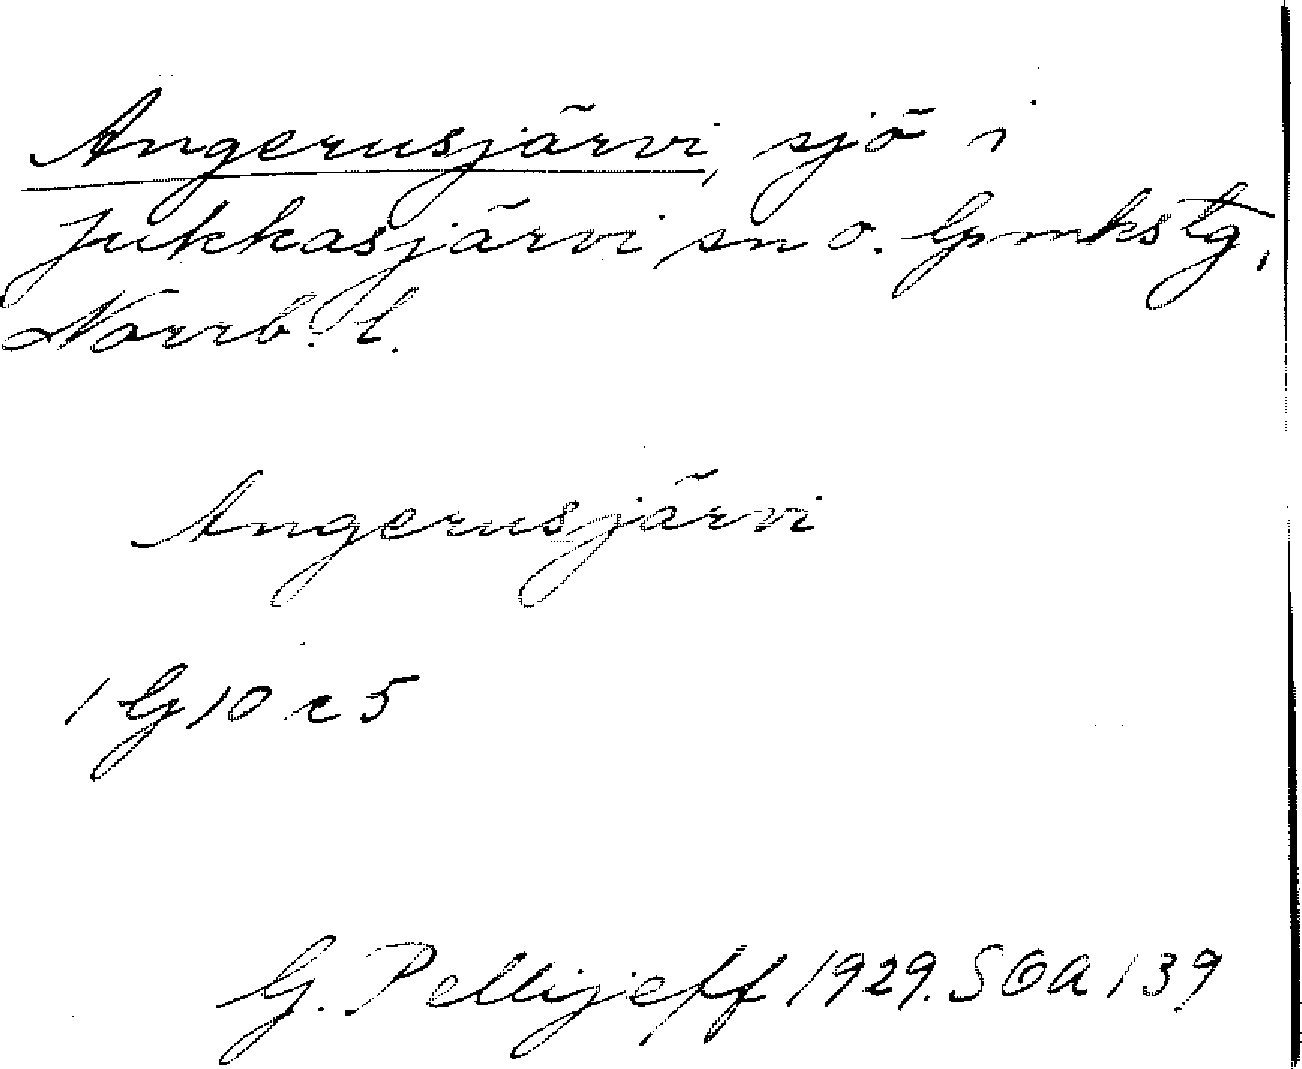 Angerusjärvi, sjö i
Jukkasjärvi sn o. lpmkstg,
Norrb. l.
Angerusjärvi
1 G 10 c 5
G. Pellijeff 1929. SOA 139